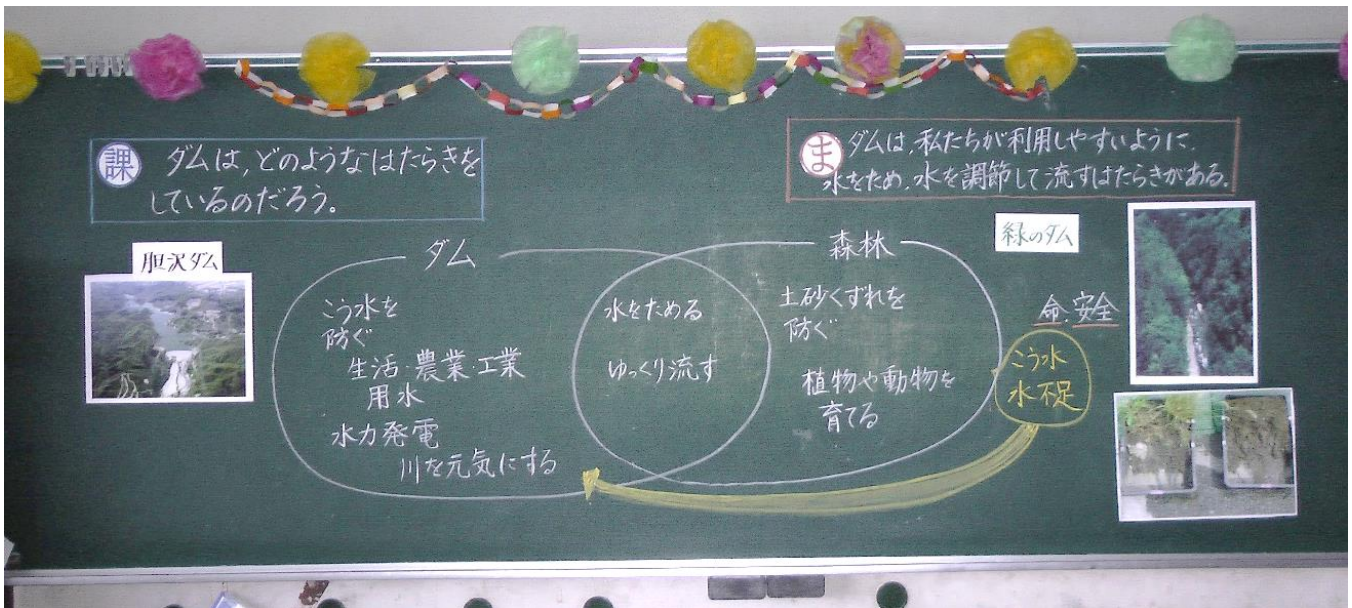 課 ダムは,どのようなはたらきを
しているのだろう。
ま ダムは,私たちが利用しやすいように,
水をため,水を調節して流すはたらきがある。
胆沢ダム
ダム
こう水を
防ぐ
生活・農業・工業
用水
水力発電
川を元気にする
水をためる
ゆっくり流す
森林
土砂くずれを
防ぐ
植物や動物を
育てる
緑のダム
命・安全
こう水
水不足